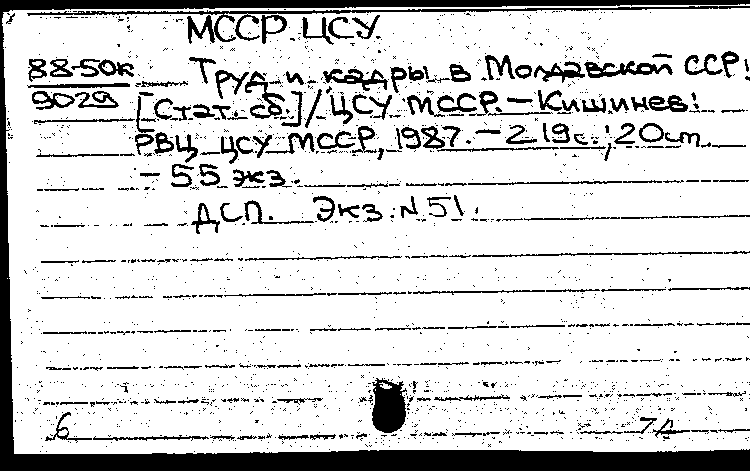 МССР. ЦСУ.
88-50к Труд и кадры в Молдавской ССР:
9029 [Стат. сб.]/ЦСУ МССР.–Кишинев:
РВЦ ЦСУ МССР, 1987.–219с.; 20см.
–55 экз.
ДСП. Экз. №51.
6